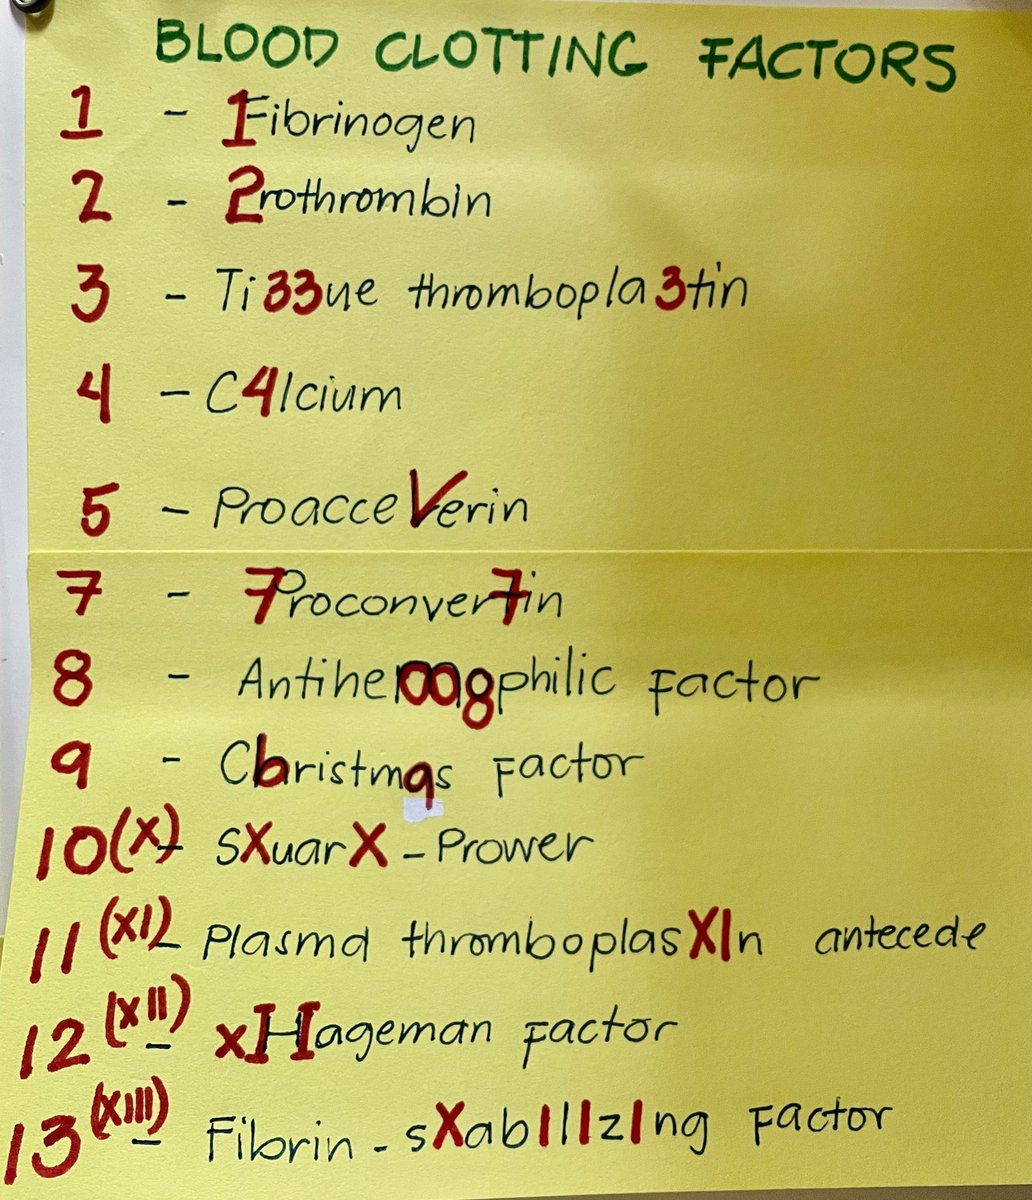 BLOOD CLOTTING FACTORS
1 - 1Fibrinogen
2 - 2rothrombin
3 - Ti33ue thrombopla3tin
4 - C4lcium
5 - ProacceVerin
7 - 7Proconver7in
8 - Antihem008philic Factor
9 - Cbristm9s Factor
10(X) - sXuarX - Prower
11(XI) - Plasma thromboplasXIn antecede
12(XII) - xIHIageman Factor
13(XIII) - Fibrin - sXabIlIzIng Factor